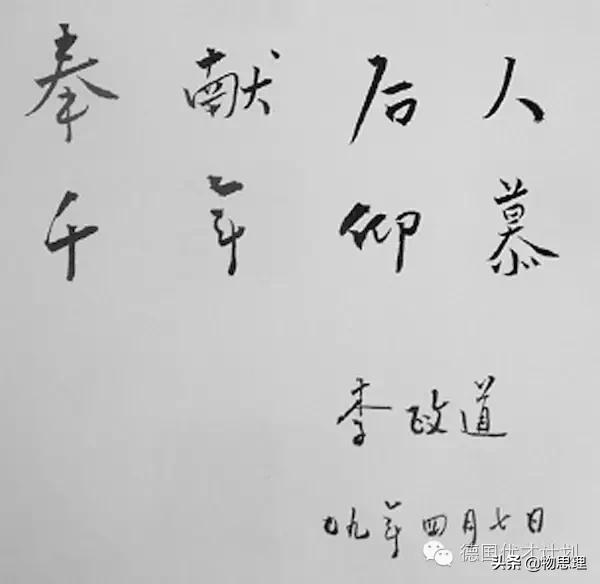 奉献后人
千年仰慕
李政道
七九年四月七日
德国优才计划
头条 @物思理